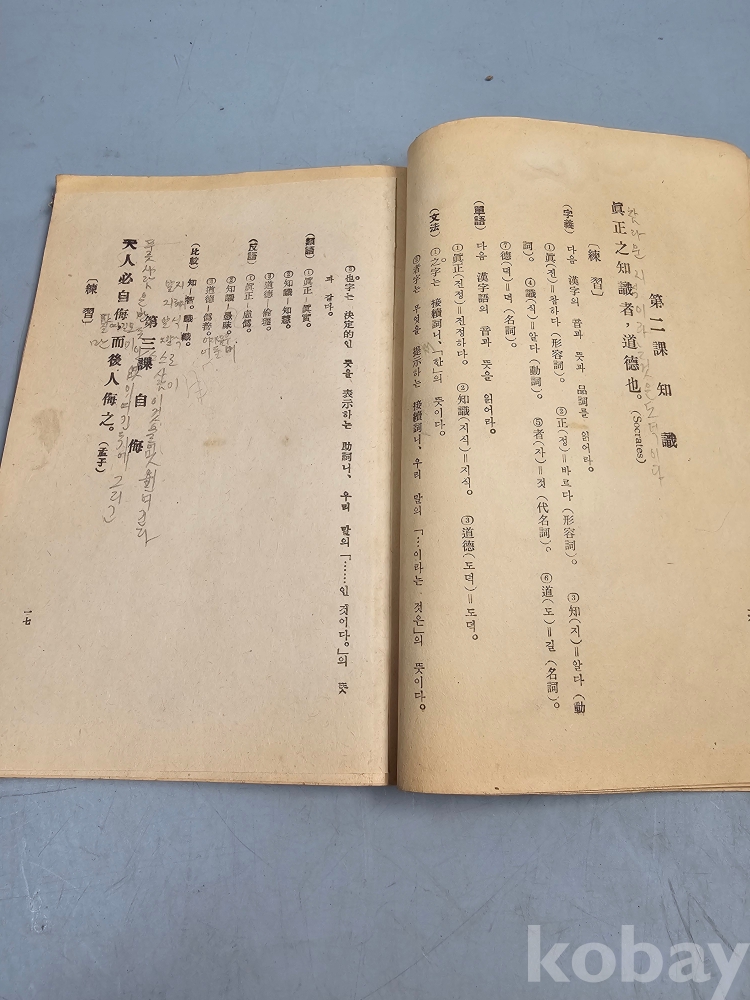 第二課 知識
眞正之知識者，道德也。(Socrates)
〔練習〕
(字義) 다음 漢字의 音과 뜻과 品詞를 읽어라.
①眞(진)＝참하다(形容詞). ②正(정)＝바르다(形容詞). ③知(지)＝알다(動
詞). ④識(식)＝알다(動詞). ⑤者(자)＝것(代名詞). ⑥道(도)＝길(名詞).
⑦德(덕)＝덕(名詞).
(單語) 다음 漢字語의 音과 뜻을 읽어라.
①眞正(진정)＝진정하다. ②知識(지식)＝지식. ③道德(도덕)＝도덕.
(文法) ①之字는 接續詞니,「한」의 뜻이다.
②者字는 무엇을 提示하는 接續詞니, 우리 말의「…이라는 것은」의 뜻이다.
③也字는 決定的인 뜻을 表示하는 助詞니, 우리 말의「……인 것이다.」의 뜻
과 같다.
(類語) ①眞正－眞實
②知識－知慧.
③道德－倫理.
(反語) ①眞正－虛僞.
②知識－愚昧.
③道德－僞善.
(比較) 知－智. 識－職.
第三課 自侮
夫人必自侮而後人侮之。(孟子)
〔練習〕
一七
kobay